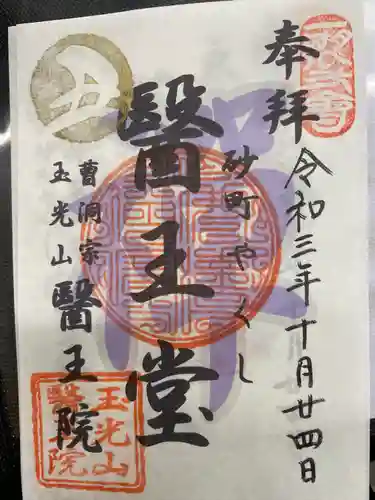 奉拝
令和三年十月廿四日
砂町やくし
醫王堂
曹洞宗
玉光山
醫王院
丑
禅
玉光山
醫王院